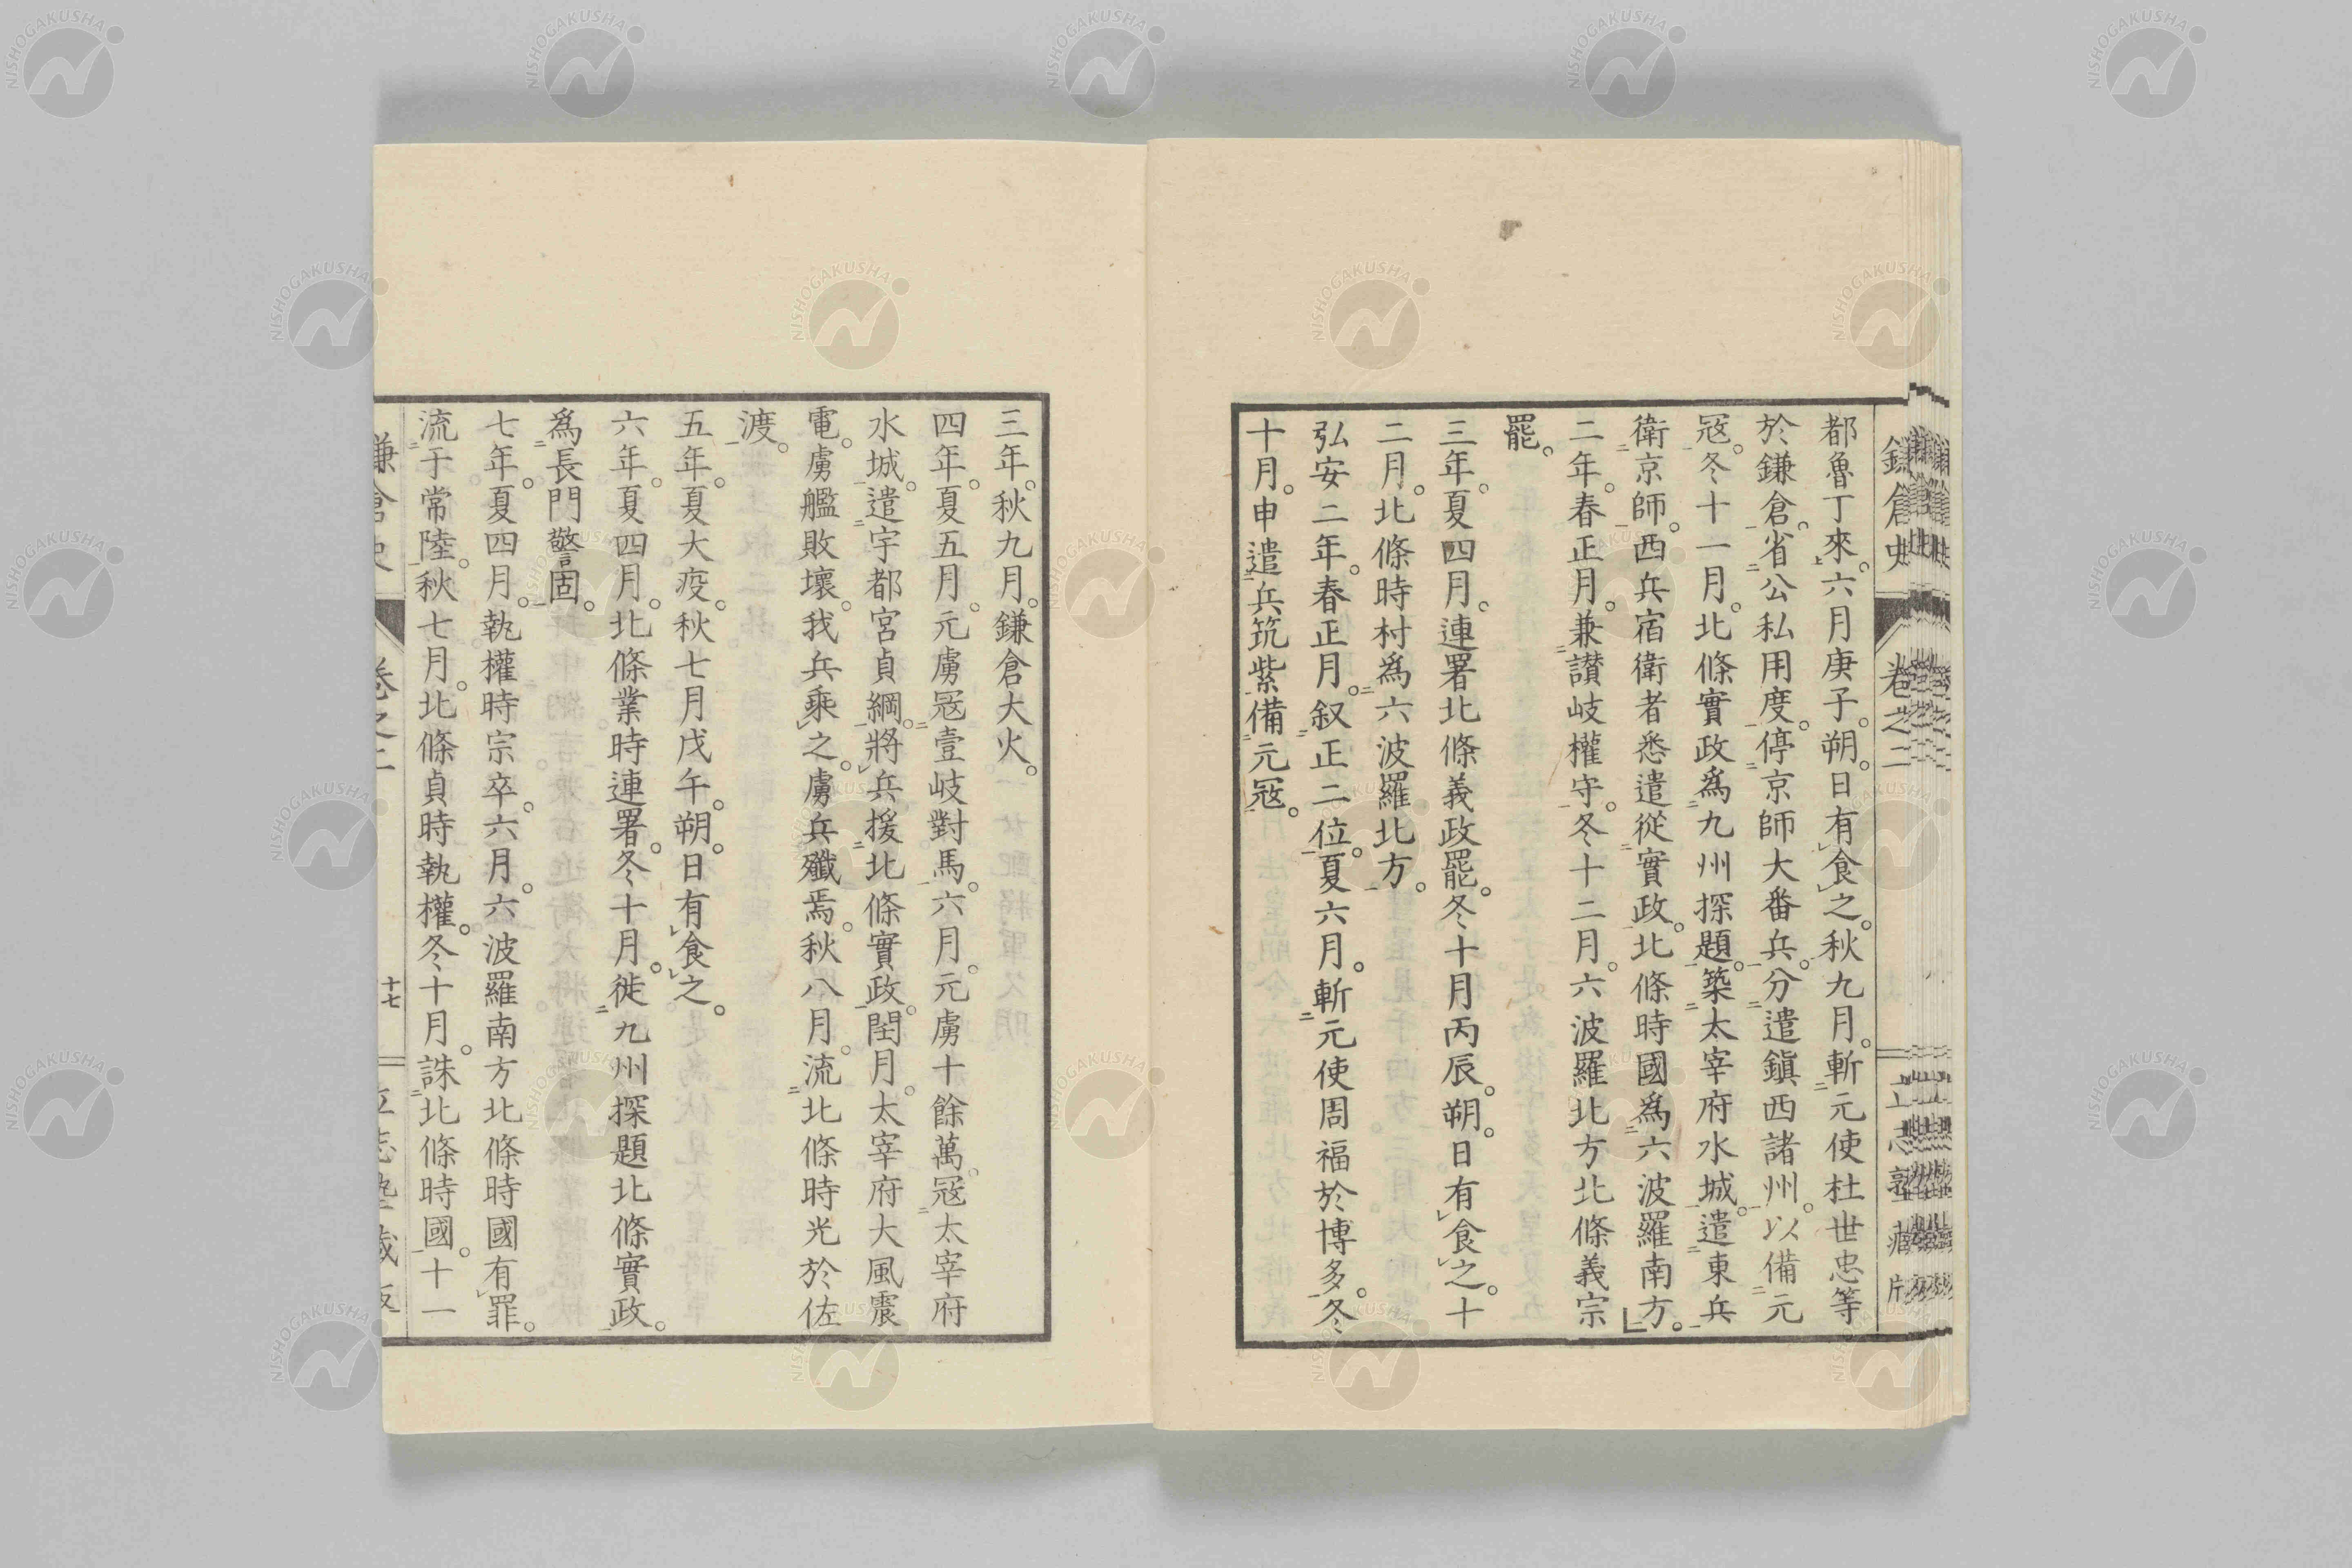 都魯丁來。六月庚子。朔。日有食之。秋九月。斬元使杜世忠等
於鎌倉。省公私用度。停京師大番兵。分遣鎭西諸州。以備元
冦。冬十一月。北條實政爲九州探題。築太宰府水城。遣東兵
衛京師。西兵宿衛者悉遣從實政。北條時國爲六波羅南方。
二年。春正月。兼讃岐權守。冬十二月。六波羅北方北條義宗
罷。
三年。夏四月。連署北條義政罷。冬十月丙辰。朔。日有食之。十
二月。北條時村爲六波羅北方。
弘安二年。春正月。叙正二位。夏六月。斬元使周福於博多。冬
十月。申遣兵筑紫備元冦。
三年。秋九月。鎌倉大火。
四年。夏五月。元虜冦壹岐對馬。六月。元虜十餘萬。冦太宰府
水城。遣宇都宮貞綱。將兵援北條實政。閏月。太宰府大風震
電。虜艦敗壞。我兵乘之。虜兵殲焉。秋八月。流北條時光於佐
渡。
五年。夏大疫。秋七月戊午。朔。日有食之。
六年。夏四月。北條業時連署。冬十月。徙九州探題北條實政。
爲長門警固。
七年。夏四月。執權時宗卒。六月。六波羅南方北條時國有罪。
流于常陸。秋七月。北條貞時執權。冬十月。誅北條時國。十一
鎌倉史 卷之二 十七 立志塾藏版
NISHOGAKUSHA